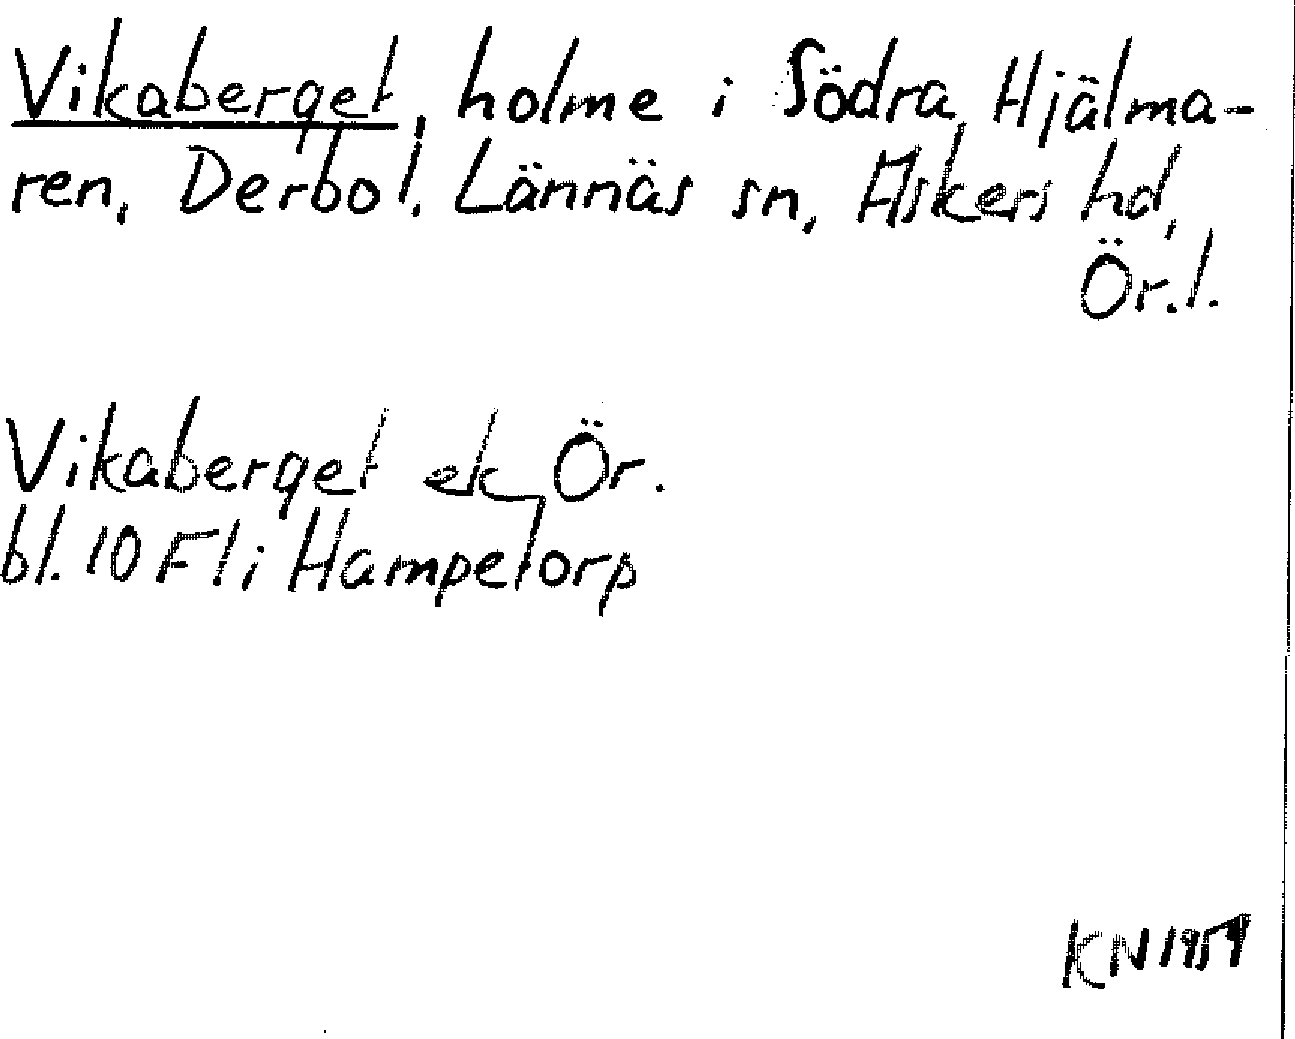 Vikaberget, holme i Södra Hjälma-
ren, Derbol, Lännäs sn, Askers hd,
Ör. l.
Vikaberget ek Ör.
bl. 10 F 1 i Hampetorp
KN 1959